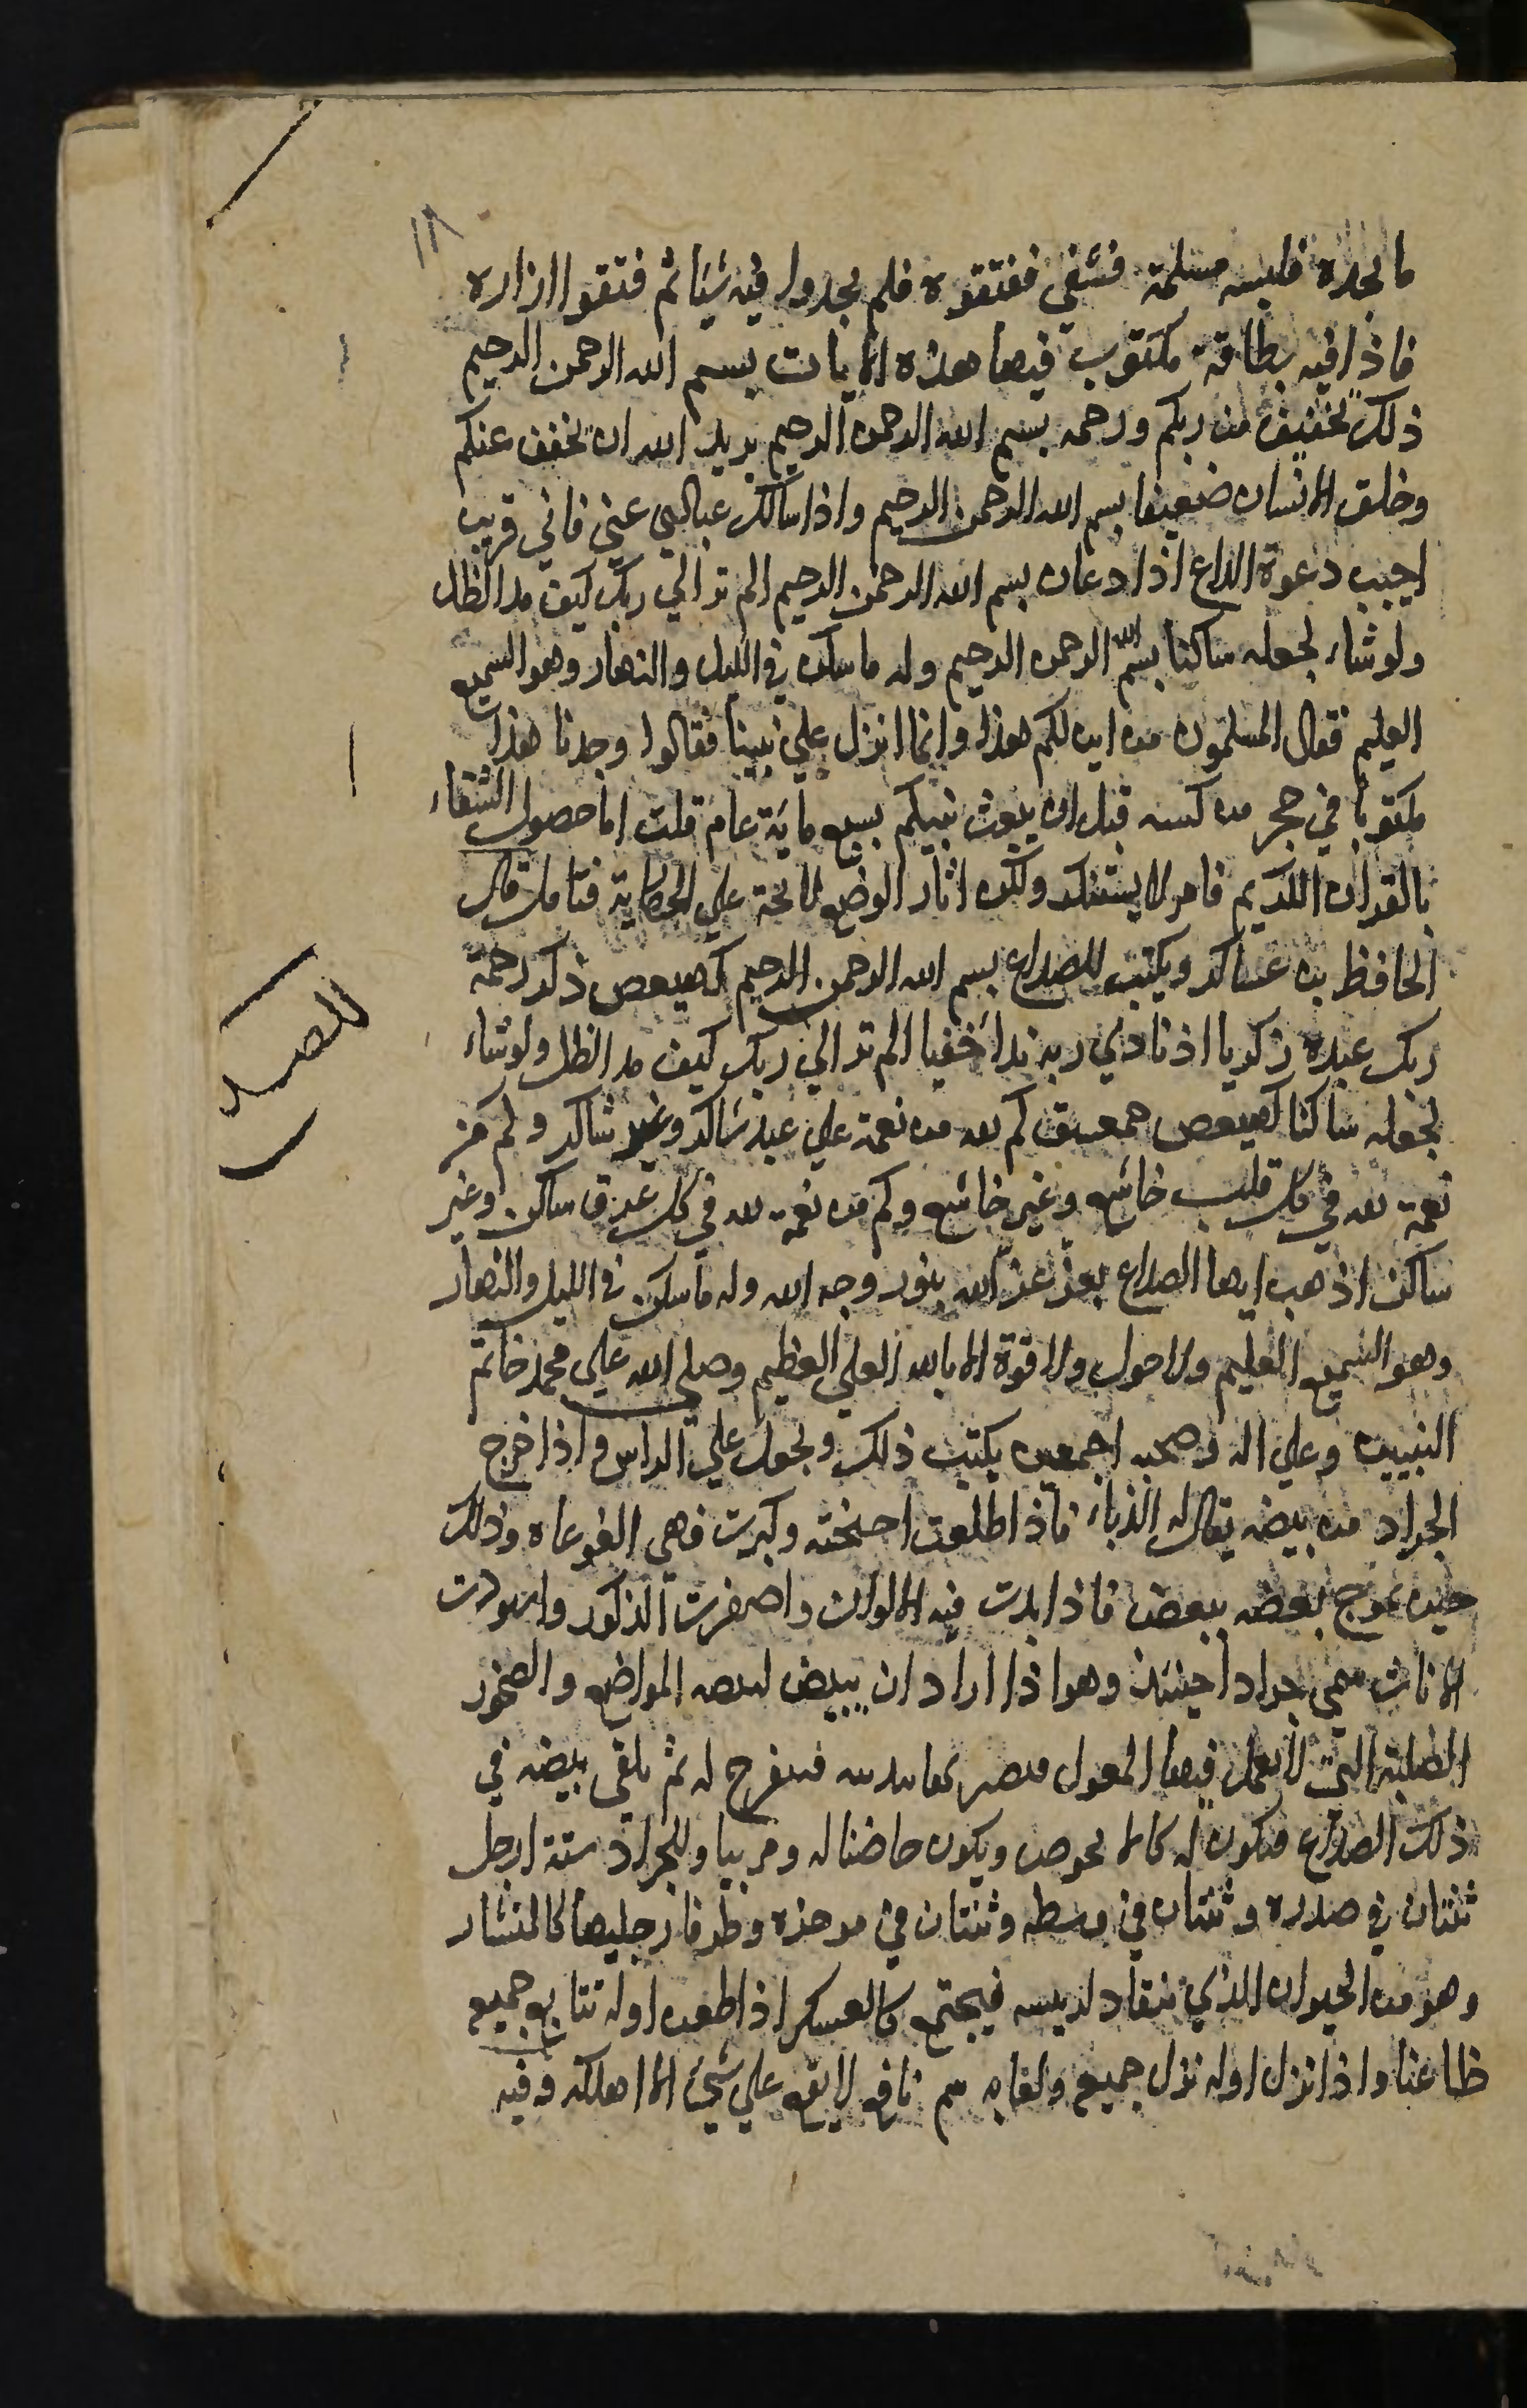 ١٨
ما يجده فلبسه مسلمة فشفي ففتقوه فلم يجدوا فيه شيا ثم فتقوا ازراره
فاذا فيه بطاقة مكتوب فيها هذه الايات بسم الله الرحمن الرحيم
ذلك تخفيف من ربكم ورحمه بسم الله الرحمن الرحيم يريد الله ان يخفف عنكم
وخلق الانسان ضعيفا بسم الله الرحمن الرحيم واذا سالك عبادي عني فاني قريب
اجيب دعوة الداع اذا دعان بسم الله الرحمن الرحيم الم تر الي ربك كيف مد الظل
ولو شاء لجعله ساكنا بسم الله الرحمن الرحيم وله ما سكن في الليل والنهار وهو السميع
العليم فقال المسلمون من اين لكم هذا وانما انزل علي نبينا فقالوا وجدنا هذا
مكتوبا في حجر من كنسه قبل ان يبعث نبيكم بسبع ماية عام قلت اما حصول الشفاء
بالقران الكريم فامر لا يستنكر ولكن اثار الوضع لائحة علي الحكاية فتامل قال
الحافظ بن عساكر ويكتب للصداع بسم الله الرحمن الرحيم كهيعص ذكر رحمة
ربك عبده زكريا اذ نادي ربه نداء خفيا الم تر الي ربك كيف مد الظل ولو شاء
لجعله ساكنا كهيعص حمعسق كم لله من نعمة علي عبد شاكر وغير شاكر وكم من
نعمة لله في كل قلب خاشع وغير خاشع وكم من نعمة لله في كل عرق ساكن وغير
ساكن اذهب ايها الصداع بعز عز الله بنور وجه الله وله ما سكن في الليل والنهار
وهو السميع العليم ولا حول ولا قوة الا بالله العلي العظيم وصلي الله علي محمد خاتم
النبيين وعلي اله وصحبه اجمعين يكتب ذلك ويجعل علي الراس واذا خرج
الجراد من بيضه يقال له الذباء فاذا اطلعت اجنحته وكبرت فهي الغوغاء وذلك
حين يموج بعضه ببعض فاذا بدت فيه الالوان واصفرت الذكور واسودت
الاناث سمي جرادا حينئذ وهو اذا اراد ان يبيض المواضع والصخور
الصلبة التي لا يعمل فيها المعول فينفرج له ثم يلقي بيضه في
ذلك الصداع فيكون له كالا ويكون حاضنا له ومربيا وللجراد ستة ارجل
ثنتان في صدره وثنتان في وسطه وثنتان في موخره وطرفا رجليها كالمنشار
وهو من الحيوان الذي ينقاد لريسه فيجتمع كالعسكر اذا ظعن اوله تتابع جميع
ظاعنا واذا نزل اوله نزل جميع ولعابه سم ناقع لا يقع علي شيئ الا اهلكه وفيه
للصداع